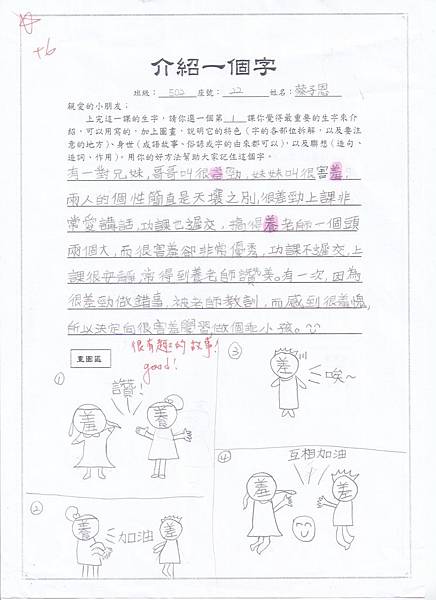 +6
介紹一個字
班級：502 座號：22 姓名：蔡子恩
親愛的小朋友：
上完這一課的生字，請你選一個第 1 課你覺得最重要的生字來介
紹，可以用寫的，加上圖畫，說明它的特色（字的各部位拆解，以及要注
意的地方）、身世（成語故事、俗諺或字的由來都可以），以及聯想（造句、
造詞、作用）。用你的好方法幫助大家記住這個字。
有一對兄妹，哥哥叫很差勁，妹妹叫很害羞，
兩人的個性簡直是天壤之別，很差勁上課非
常愛講話，功課也遲交，搞得養老師一個頭
兩個大，而很害羞卻非常優秀，功課不遲交，上
課很安靜，常得到養老師讚美。有一次，因為
很差勁做錯事，被老師教訓，而感到很羞愧，
所以決定向很害羞學習做個乖小孩。
很有趣的故事！
good！
畫圖區
①
讚！
羞
養
②
養
加油
差
③
差
唉～
④
互相加油
羞
差